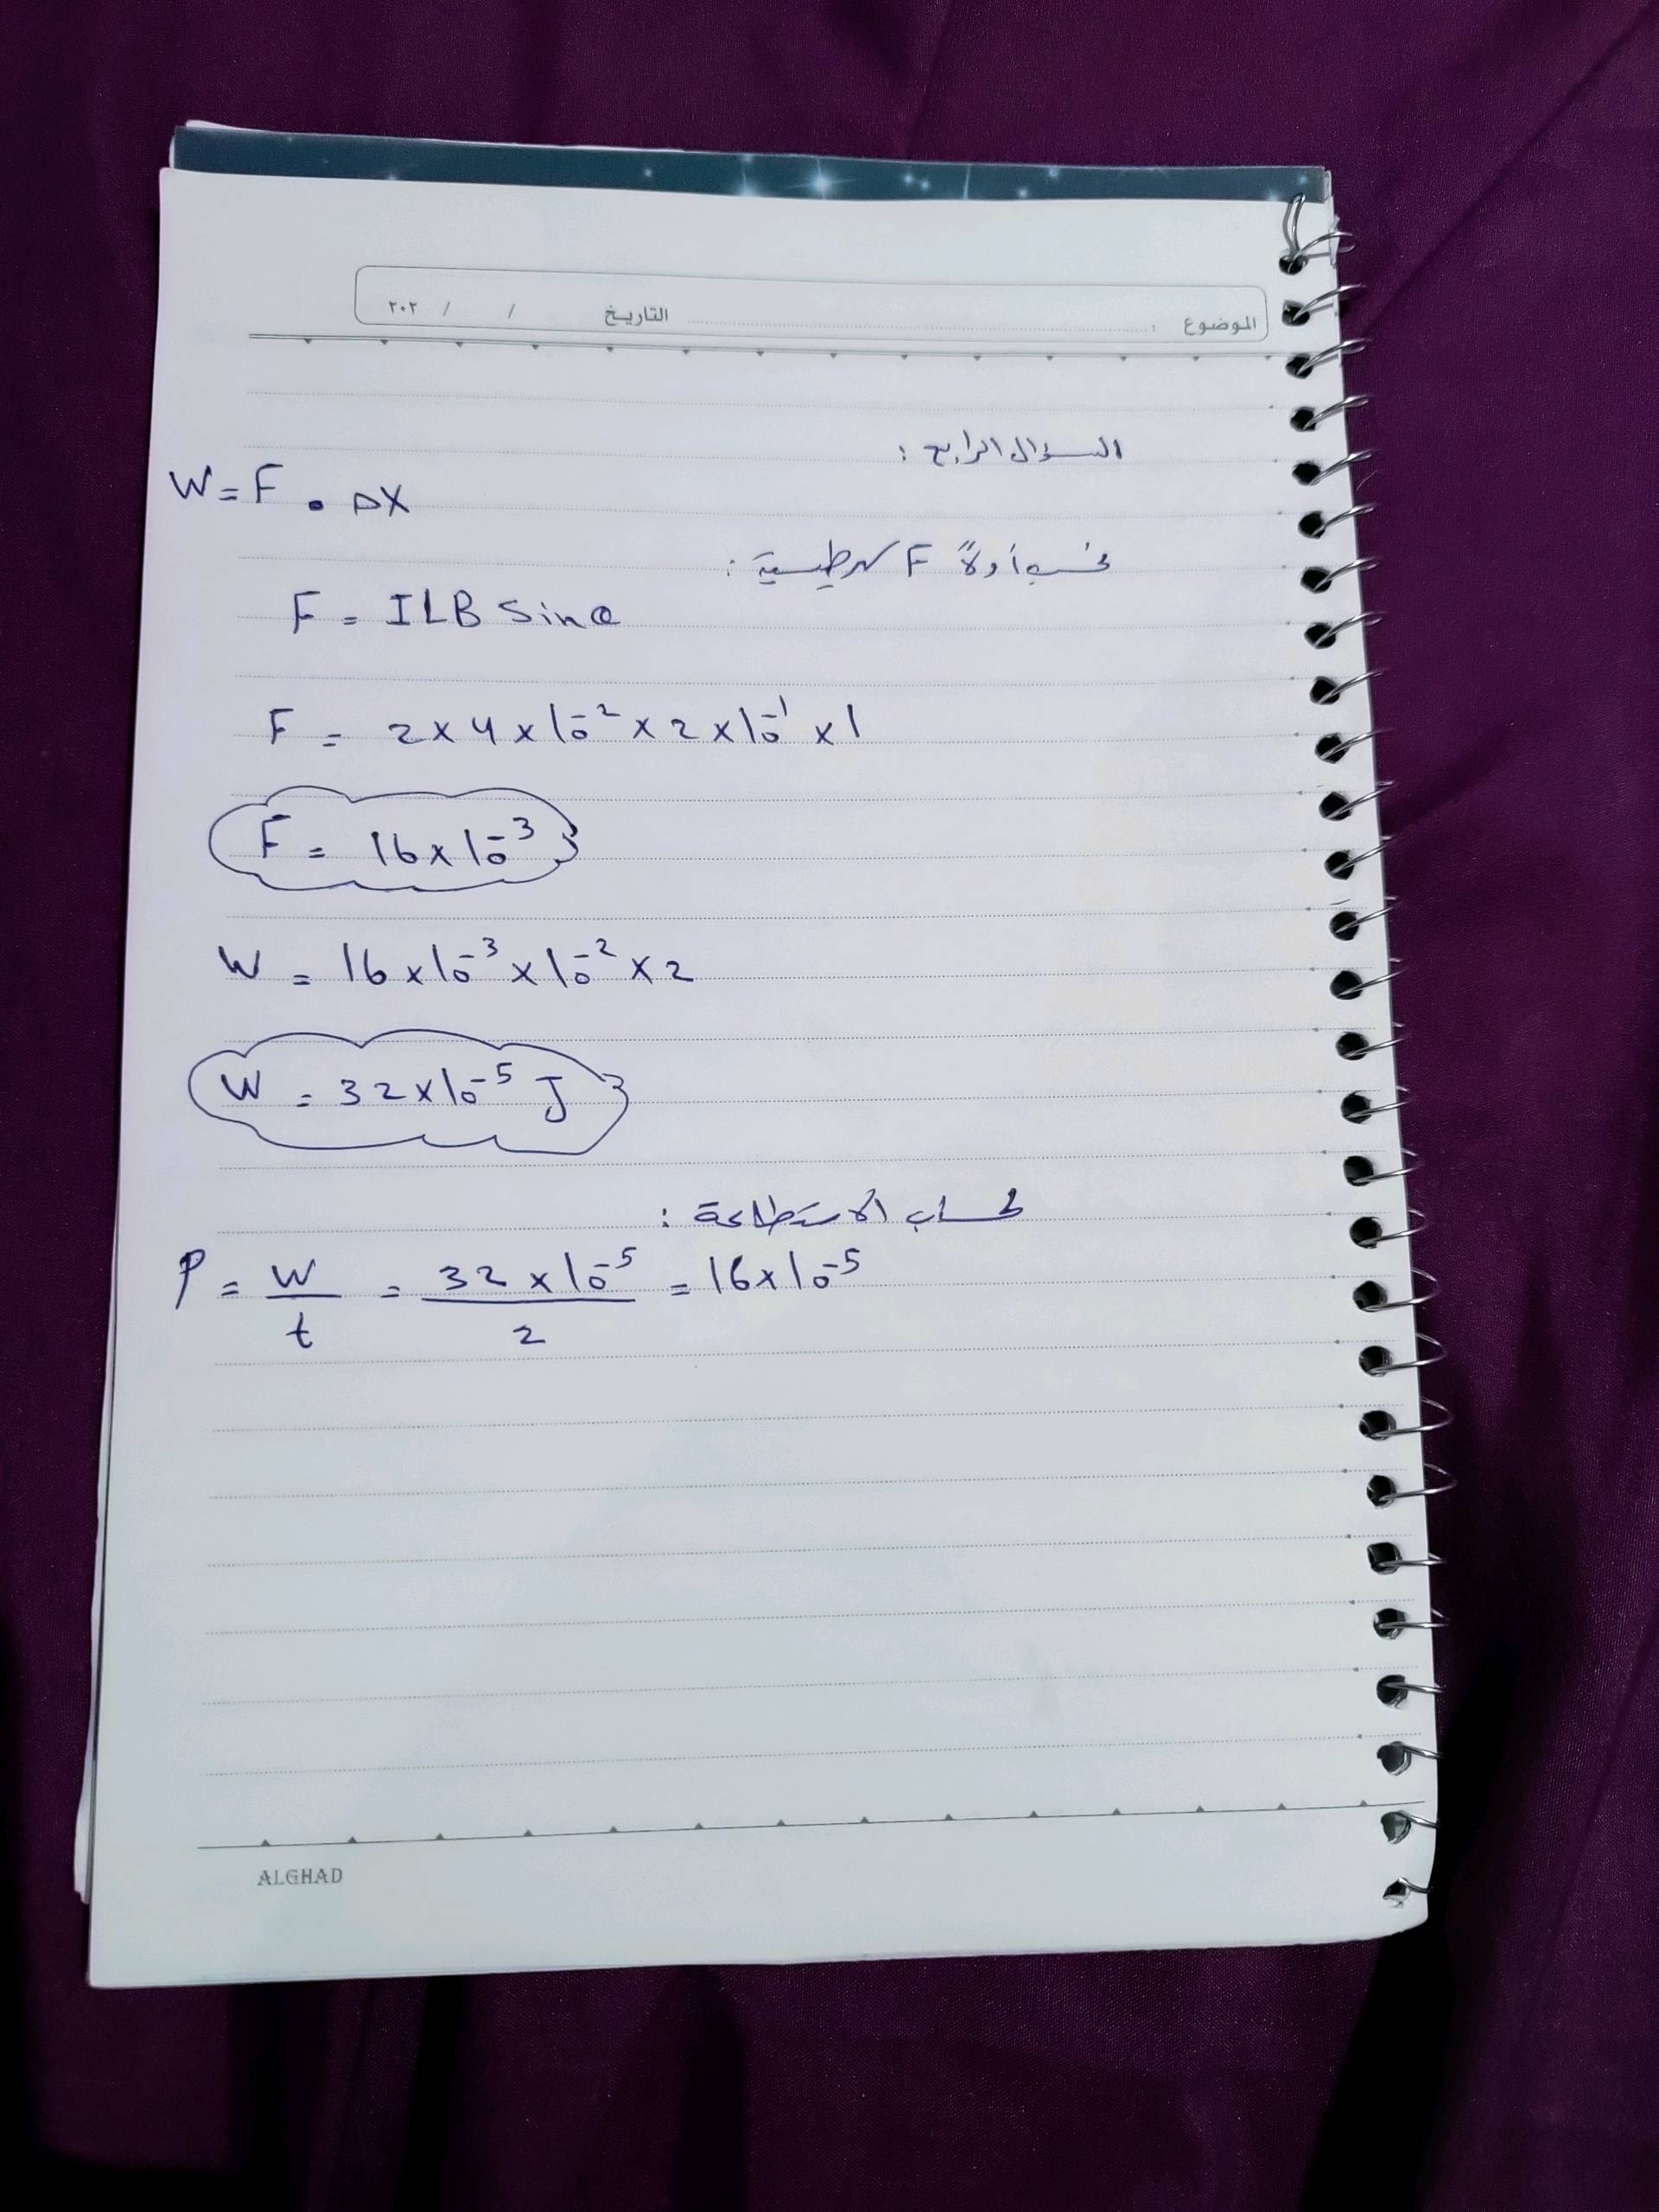 الموضوع : التاريخ / / ٢٠٢
السؤال الرابع :
W = F . ΔX
نحسب أولاً F كهرطيسية :
F = ILB Sin θ
F = 2 x 4 x 10⁻² x 2 x 10⁻¹ x 1
F = 16 x 10⁻³
W = 16 x 10⁻³ x 10⁻² x 2
W = 32 x 10⁻⁵ J
لحساب الاستطاعة :
P = W/t = 32 x 10⁻⁵/2 = 16 x 10⁻⁵
ALGHAD